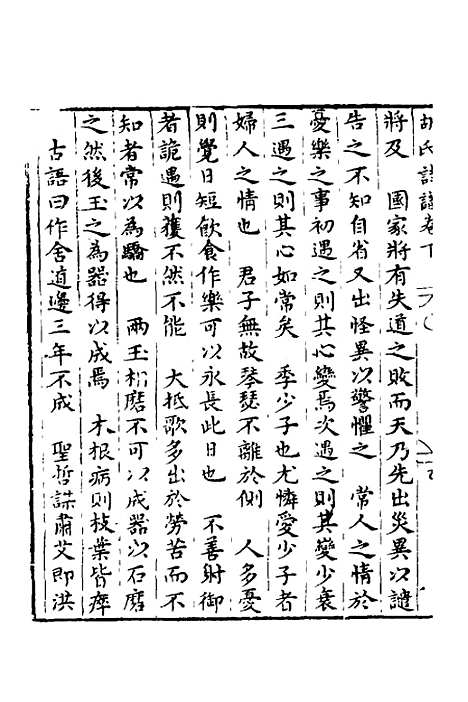 胡氏詩識卷下
將及　國家將有失道之敗而天乃先出災異以譴
告之不知自省又出怪異以警懼之　常人之情於
憂樂之事初遇之則其心變焉次遇之則其變少衰
三遇之則其心如常矣　季少子也尤憐愛少子者
婦人之情也　君子無故琴瑟不離於側　人多憂
則覺日短飲食作樂可以永長此日也　不善射御
者詭遇則獲不然不能　大抵歌多出於勞苦而不
知者常以為驕也　兩玉相磨不可以成器以石磨
之然後玉之為器得以成焉　木根病則枝葉皆瘁
古語曰作舍道邊三年不成　聖哲謀肅艾即洪